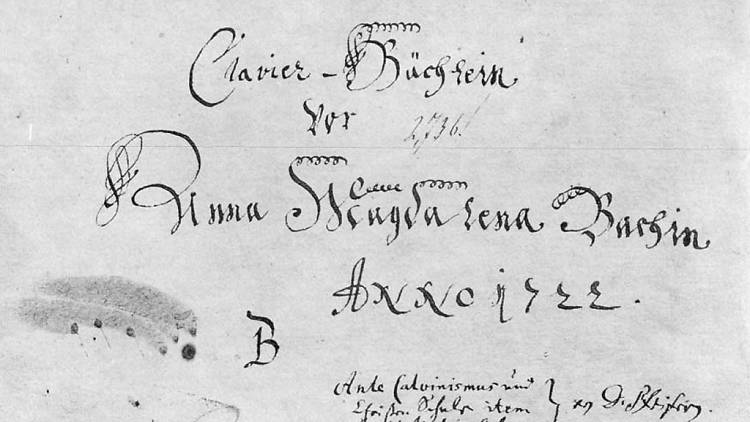 Clavier-Büchlein
vor 2,736.
Anna Magdalena Bachin
ANNO 1722.
B
Ante Calvinismus und
Christen Schule item } von D. Pfeifern.